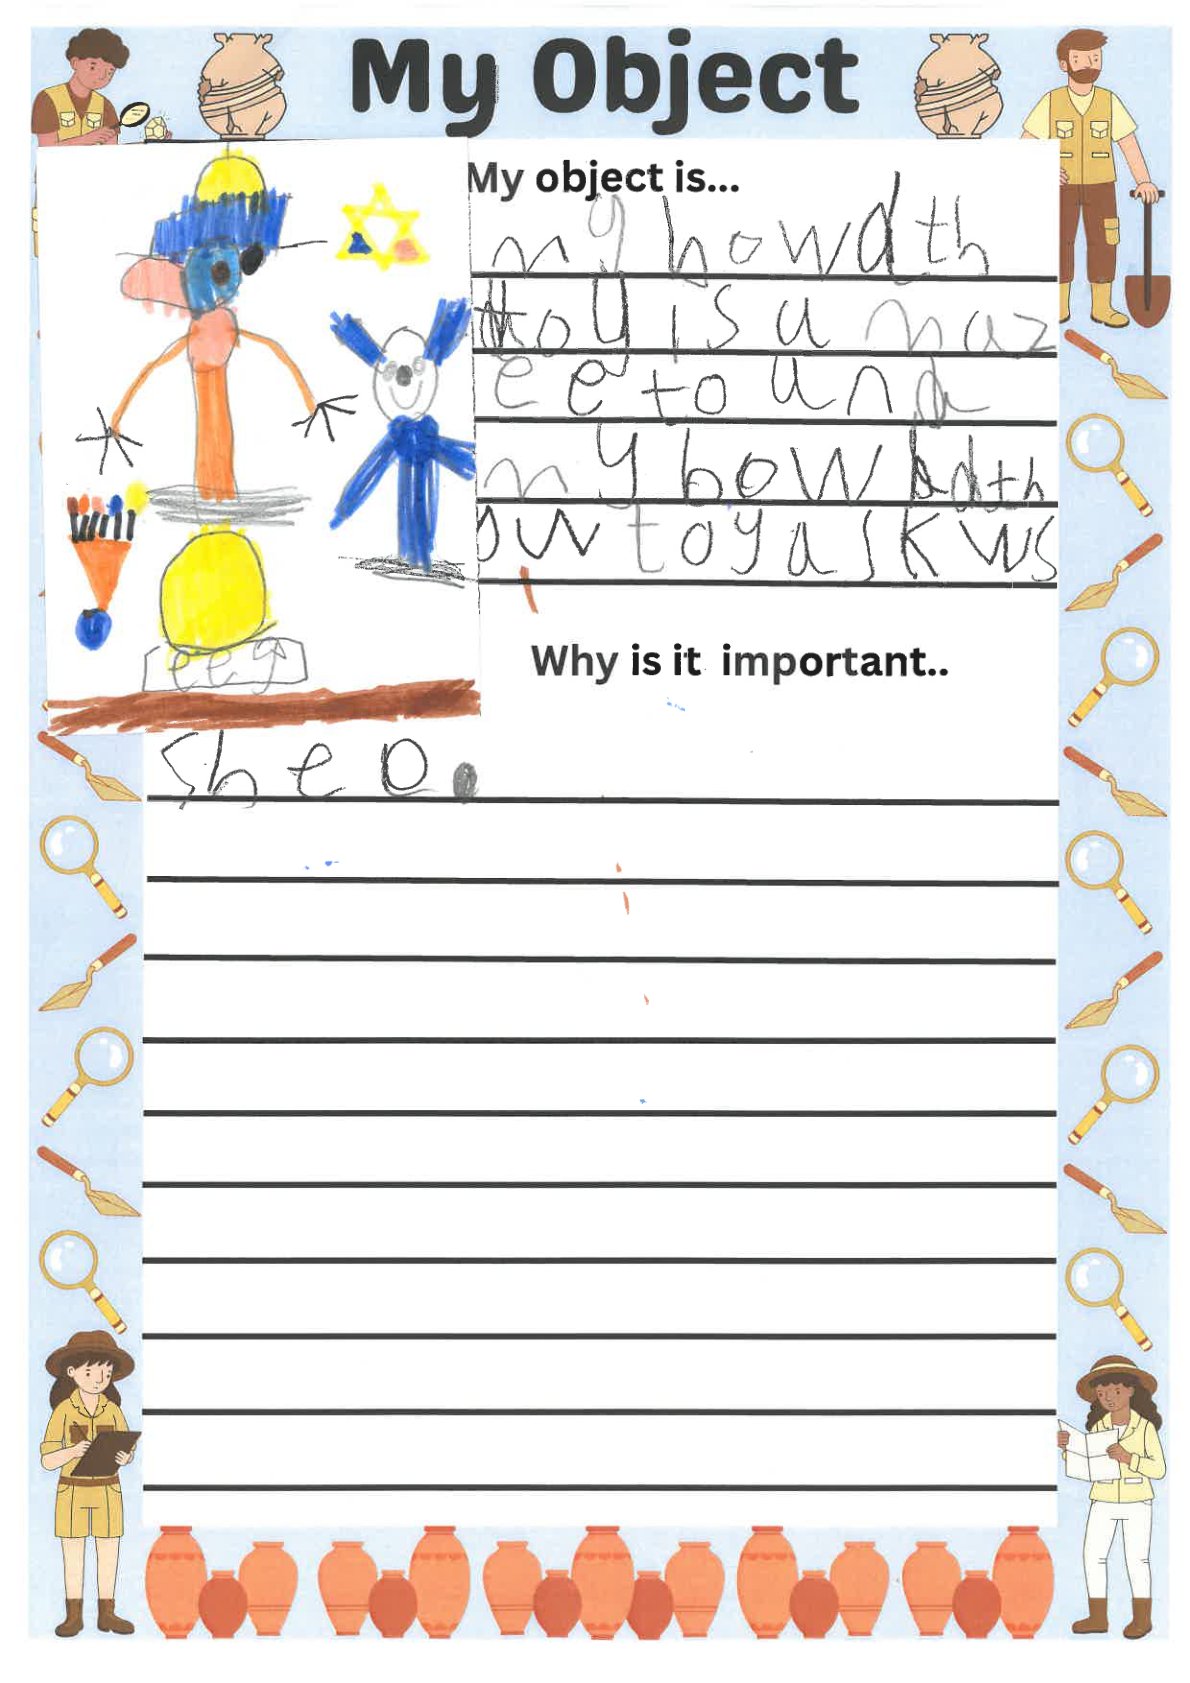 My Object
My object is...
my howdth
toy is a maz
ee to and
my bow dth
ow toy ask ws
eeg
Why is it important..
sheo.